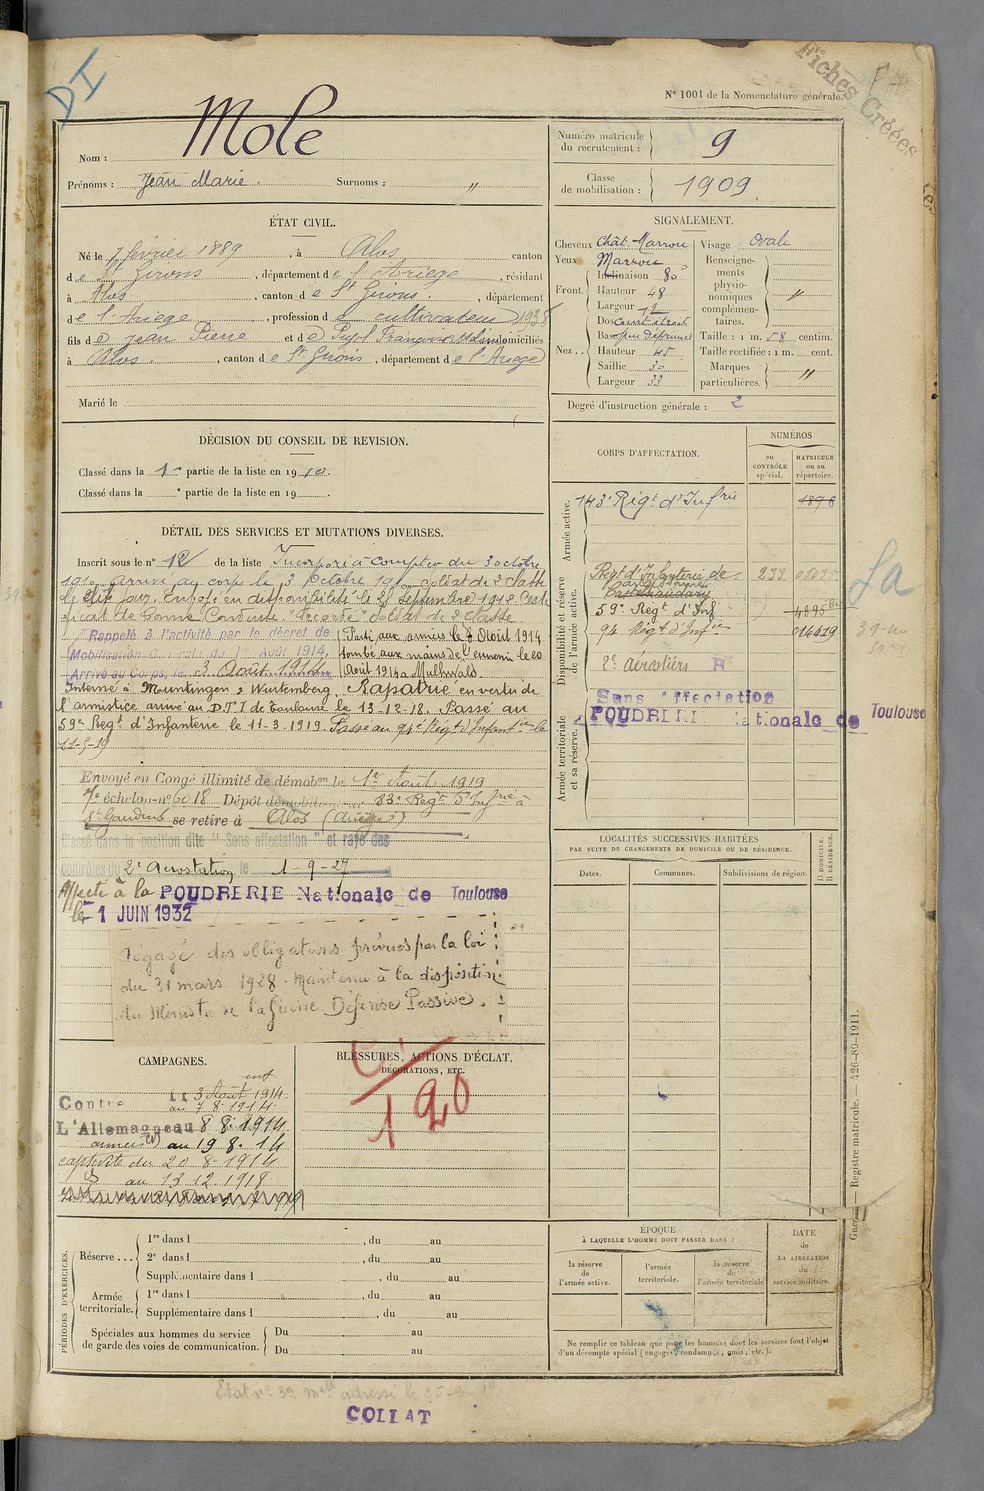 DI
Fiches Créées
N° 1001 de la Nomenclature générale.
Nom : Mole
Prénoms : Jean Marie. Surnoms : "
Numéro matricule du recrutement : 9
Classe de mobilisation : 1909
ÉTAT CIVIL.
Né le 7 février 1889, à Alos, canton
de St Girons, département de l'Ariège, résidant
à Alos, canton de St Girons, département
de l'Ariège, profession de cultivateur 1938
fils de Jean Pierre et de domiciliés
à Alos, canton de St Girons, département de l'Ariège
Marié le
SIGNALEMENT.
Cheveux Chât. Marron
Yeux Marron
Front. Inclinaison 80°
Hauteur 48
Largeur
Nez.. Dos
Base
Hauteur 45
Saillie 30
Largeur 33
Visage Ovale
Renseignements physionomiques complémentaires. "
Taille : 1 m. 58 centim.
Taille rectifiée : 1 m. cent.
Marques particulières. "
Degré d'instruction générale : 2
DÉCISION DU CONSEIL DE REVISION.
Classé dans la 1re partie de la liste en 1910.
Classé dans la ° partie de la liste en 19 .
DÉTAIL DES SERVICES ET MUTATIONS DIVERSES.
Inscrit sous le n° 12 de la liste Incorporé à compter du 3 octobre
1910 arrivé au corps le 3 Octobre 1910 soldat de 2e classe
le dit jour. Envoyé en disponibilité le 25 Septembre 1912. Certi
ficat de Bonne Conduite. Accordé. Soldat de 2e classe
Rappelé à l'activité par le décret de
Mobilisation Générale du 1er Août 1914,
Arrivé au Corps, le 3 Août 1914
Parti aux armées le 7 Août 1914
tombé aux mains de l'ennemi le 20
Août 1914 à Mulhwald.
Interné à Muntingen, Wurtemberg. Rapatrié en vertu de
l'armistice arrivé au D.T.I de Toulouse le 13-12-18. Passé au
59e Regt. d'Infanterie le 11-3-1919. Passé au 94e Régt d'Infantie le
Envoyé en Congé illimité de démobon le 1er Août 1919
7e échelon n° 6018 Dépôt démobilisateur 83e Regt d'Infrie à
St Gaudens se retire à Alos (Ariège)
Classé dans la position dite "Sans affectation" et rayé des
contrôles du 2e Aérostation le 1-9-27
Affecté à la POUDRERIE Nationale de Toulouse
le 1 JUIN 1932
Dégagé des obligations prévues par la loi
du 31 mars 1928. Maintenu à la disposition
du Ministre de la Guerre Défense Passive.
CORPS D'AFFECTATION.
NUMÉROS
au CONTRÔLE spécial.
MATRICULE ou au répertoire.
Armée active.
143e Régt d'Infrie 1896
Disponibilité et réserve de l'armée active.
Régt d'Infanterie de 233
Castelnaudary
59e Regt d'Inf
94 Régt d'Infie 014419
2e Aérostiers
Armée territoriale et sa réserve.
Sans Affectation
POUDRERIE Nationale de Toulouse
LOCALITÉS SUCCESSIVES HABITÉES
PAR SUITE DE CHANGEMENTS DE DOMICILE OU DE RÉSIDENCE.
Dates.
Communes.
Subdivisions de région.
D. DOMICILE, R. RÉSIDENCE.
CAMPAGNES.
int.
Contre 3 Août 1914
au 7 8 1914
L'Allemagne au 8 8. 1914
armées au 19 8. 14
captivité du 20 8-1914
au 13 12. 1918
BLESSURES, ACTIONS D'ÉCLAT,
DÉCORATIONS, ETC.
120
Guerre — Registre matricule. — 426-89-1911.
PÉRIODES D'EXERCICES.
Réserve... 1re dans l , du au
2e dans l , du au
Supplémentaire dans l , du au
Armée territoriale. 1re dans l , du au
Supplémentaire dans l , du au
Spéciales aux hommes du service de garde des voies de communication. Du au
Du au
ÉPOQUE
À LAQUELLE L'HOMME DOIT PASSER DANS :
la réserve de l'armée active.
l'armée territoriale.
la réserve de l'armée territoriale
DATE de LA LIBÉRATION du service militaire.
Ne remplir ce tableau que pour les hommes dont les services font l'objet
d'un décompte spécial (engagés, condamnés, omis, etc.).
Etat n° 39 adressé le
COLLAT